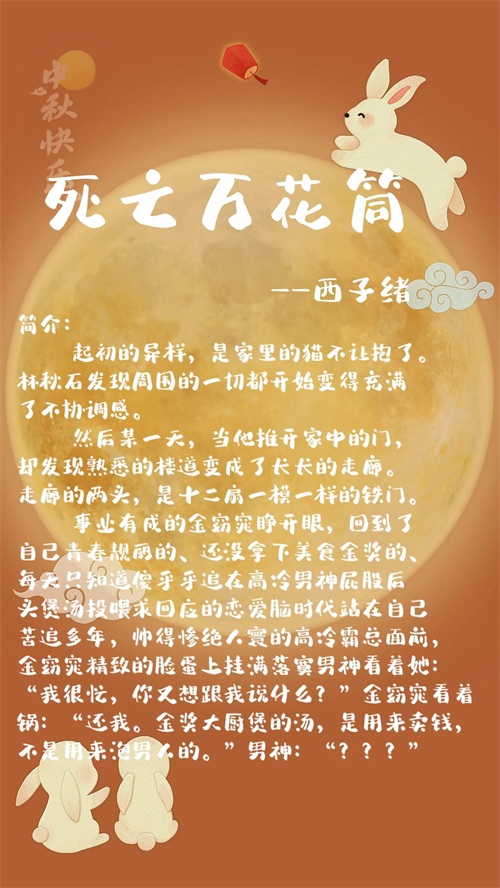 中秋快乐
死亡万花筒
--西子绪
简介：
起初的异样，是家里的猫不让抱了。
林秋石发现周围的一切都开始变得充满
了不协调感。
然后某一天，当他推开家中的门，
却发现熟悉的楼道变成了长长的走廊。
走廊的两头，是十二扇一模一样的铁门。
事业有成的金窈窕睁开眼，回到了
自己青春靓丽的、还没拿下美食金奖的、
每天只知道傻乎乎追在高冷男神屁股后
头煲汤投喂求回应的恋爱脑时代站在自己
苦追多年，帅得惨绝人寰的高冷霸总面前，
金窈窕精致的脸蛋上挂满落寞男神看着她：
“我很忙，你又想跟我说什么？”金窈窕看着
锅：“还我。金奖大厨煲的汤，是用来卖钱，
不是用来泡男人的。”男神：“？？？”